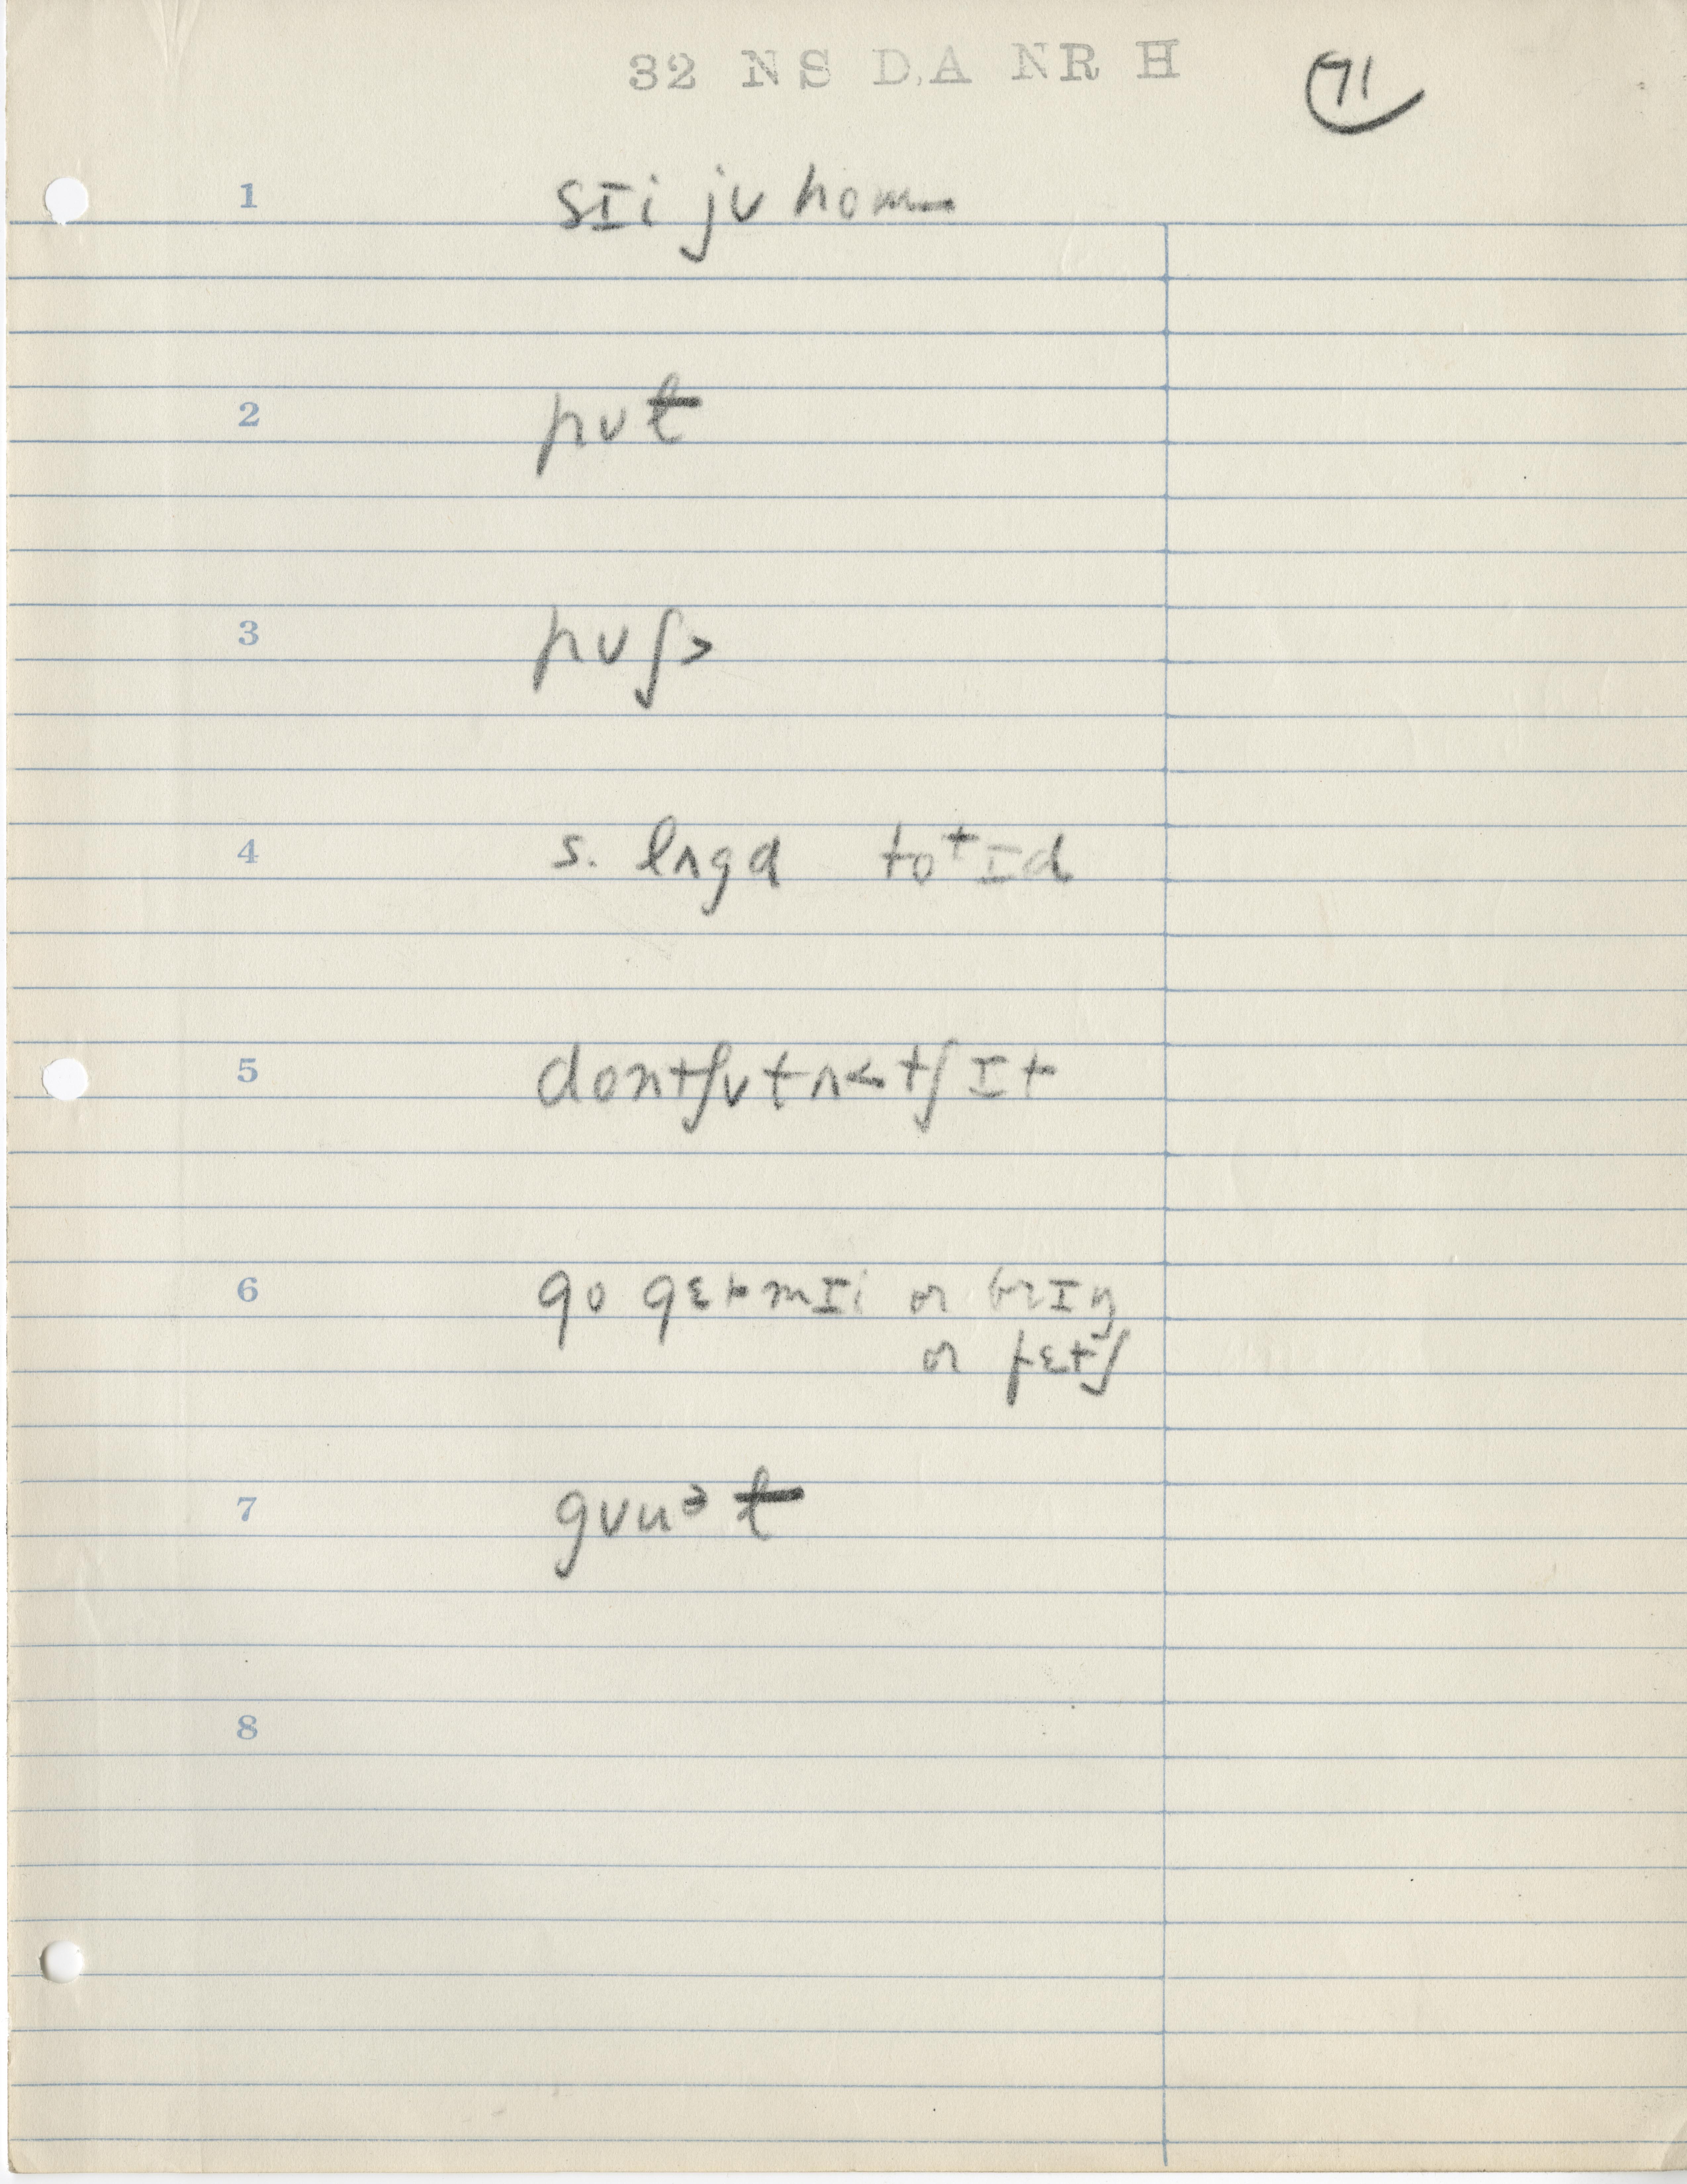 32 NS D.A NR H
71
1 sɪi jʊ hom
2 pʊt
3 pʊʃ>
4 s. lʌgd totɪd
5 dontʃʊtʌ<tʃɪt
6 go gɛtmɪi or brɪŋ
or fɛtʃ
7 gʊuᵊt
8